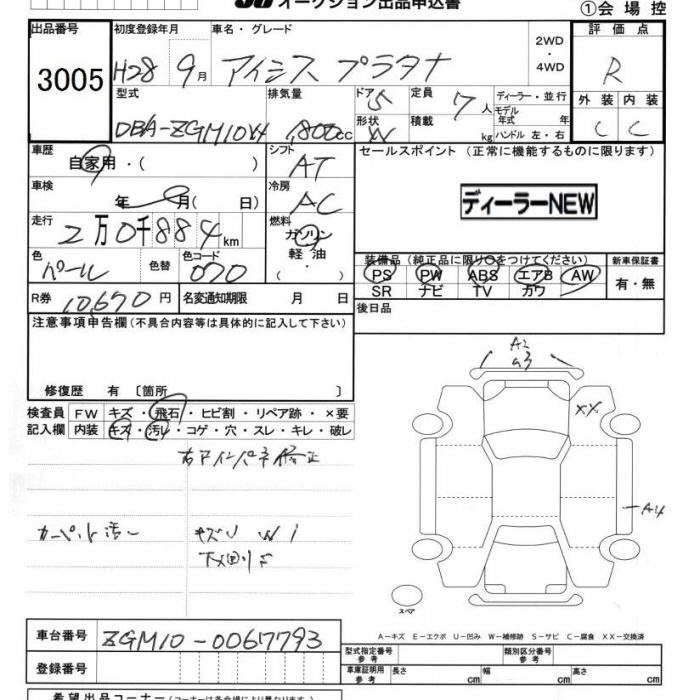 オークション出品申込書
①会場控
出品番号 初度登録年月 車名・グレード 2WD・4WD 評価点
3005 H28 9月 アイシス プラタナ R
型式 排気量 ドア 定員 ディーラー・並行 外装 内装
DBA-ZGM10W 1,800cc 5 7人 モデル年式 年 C C
形状 W 積載 kg ハンドル 左・右
車歴 シフト セールスポイント(正常に機能するものに限ります)
自家用・( ) AT
車検 冷房 ディーラーNEW
年 月( 日) AC
走行 燃料
2万0千884km ガソリン・軽油・( )
色 色替 色コード 装備品(純正品に限り○をつけてください) 新車保証書
パール 070 PS PW ABS エアB AW 有・無
SR ナビ TV カワ
R券 10,670円 名変通知期限 月 日 後日品
注意事項申告欄(不具合内容等は具体的に記入して下さい)
A2
A3
修復歴 有 〔箇所 〕
XX
検査員 FW キズ・飛石・ヒビ割・リペア跡・×要
記入欄 内装 キズ・汚レ・コゲ・穴・スレ・キレ・破レ
右アインパネ修正
A4
カーペット汚 キズU W1
下回りF
スペア
車台番号 ZGM10-0067793
A-キズ E-エクボ U-凹み W-補修跡 S-サビ C-腐食 XX-交換済
型式指定番号 参考 類別区分番号 参考
登録番号 車庫証明用 参考 長さ cm 幅 cm 高さ cm
希望出品コーナー(コーナーは各会場により異なります)